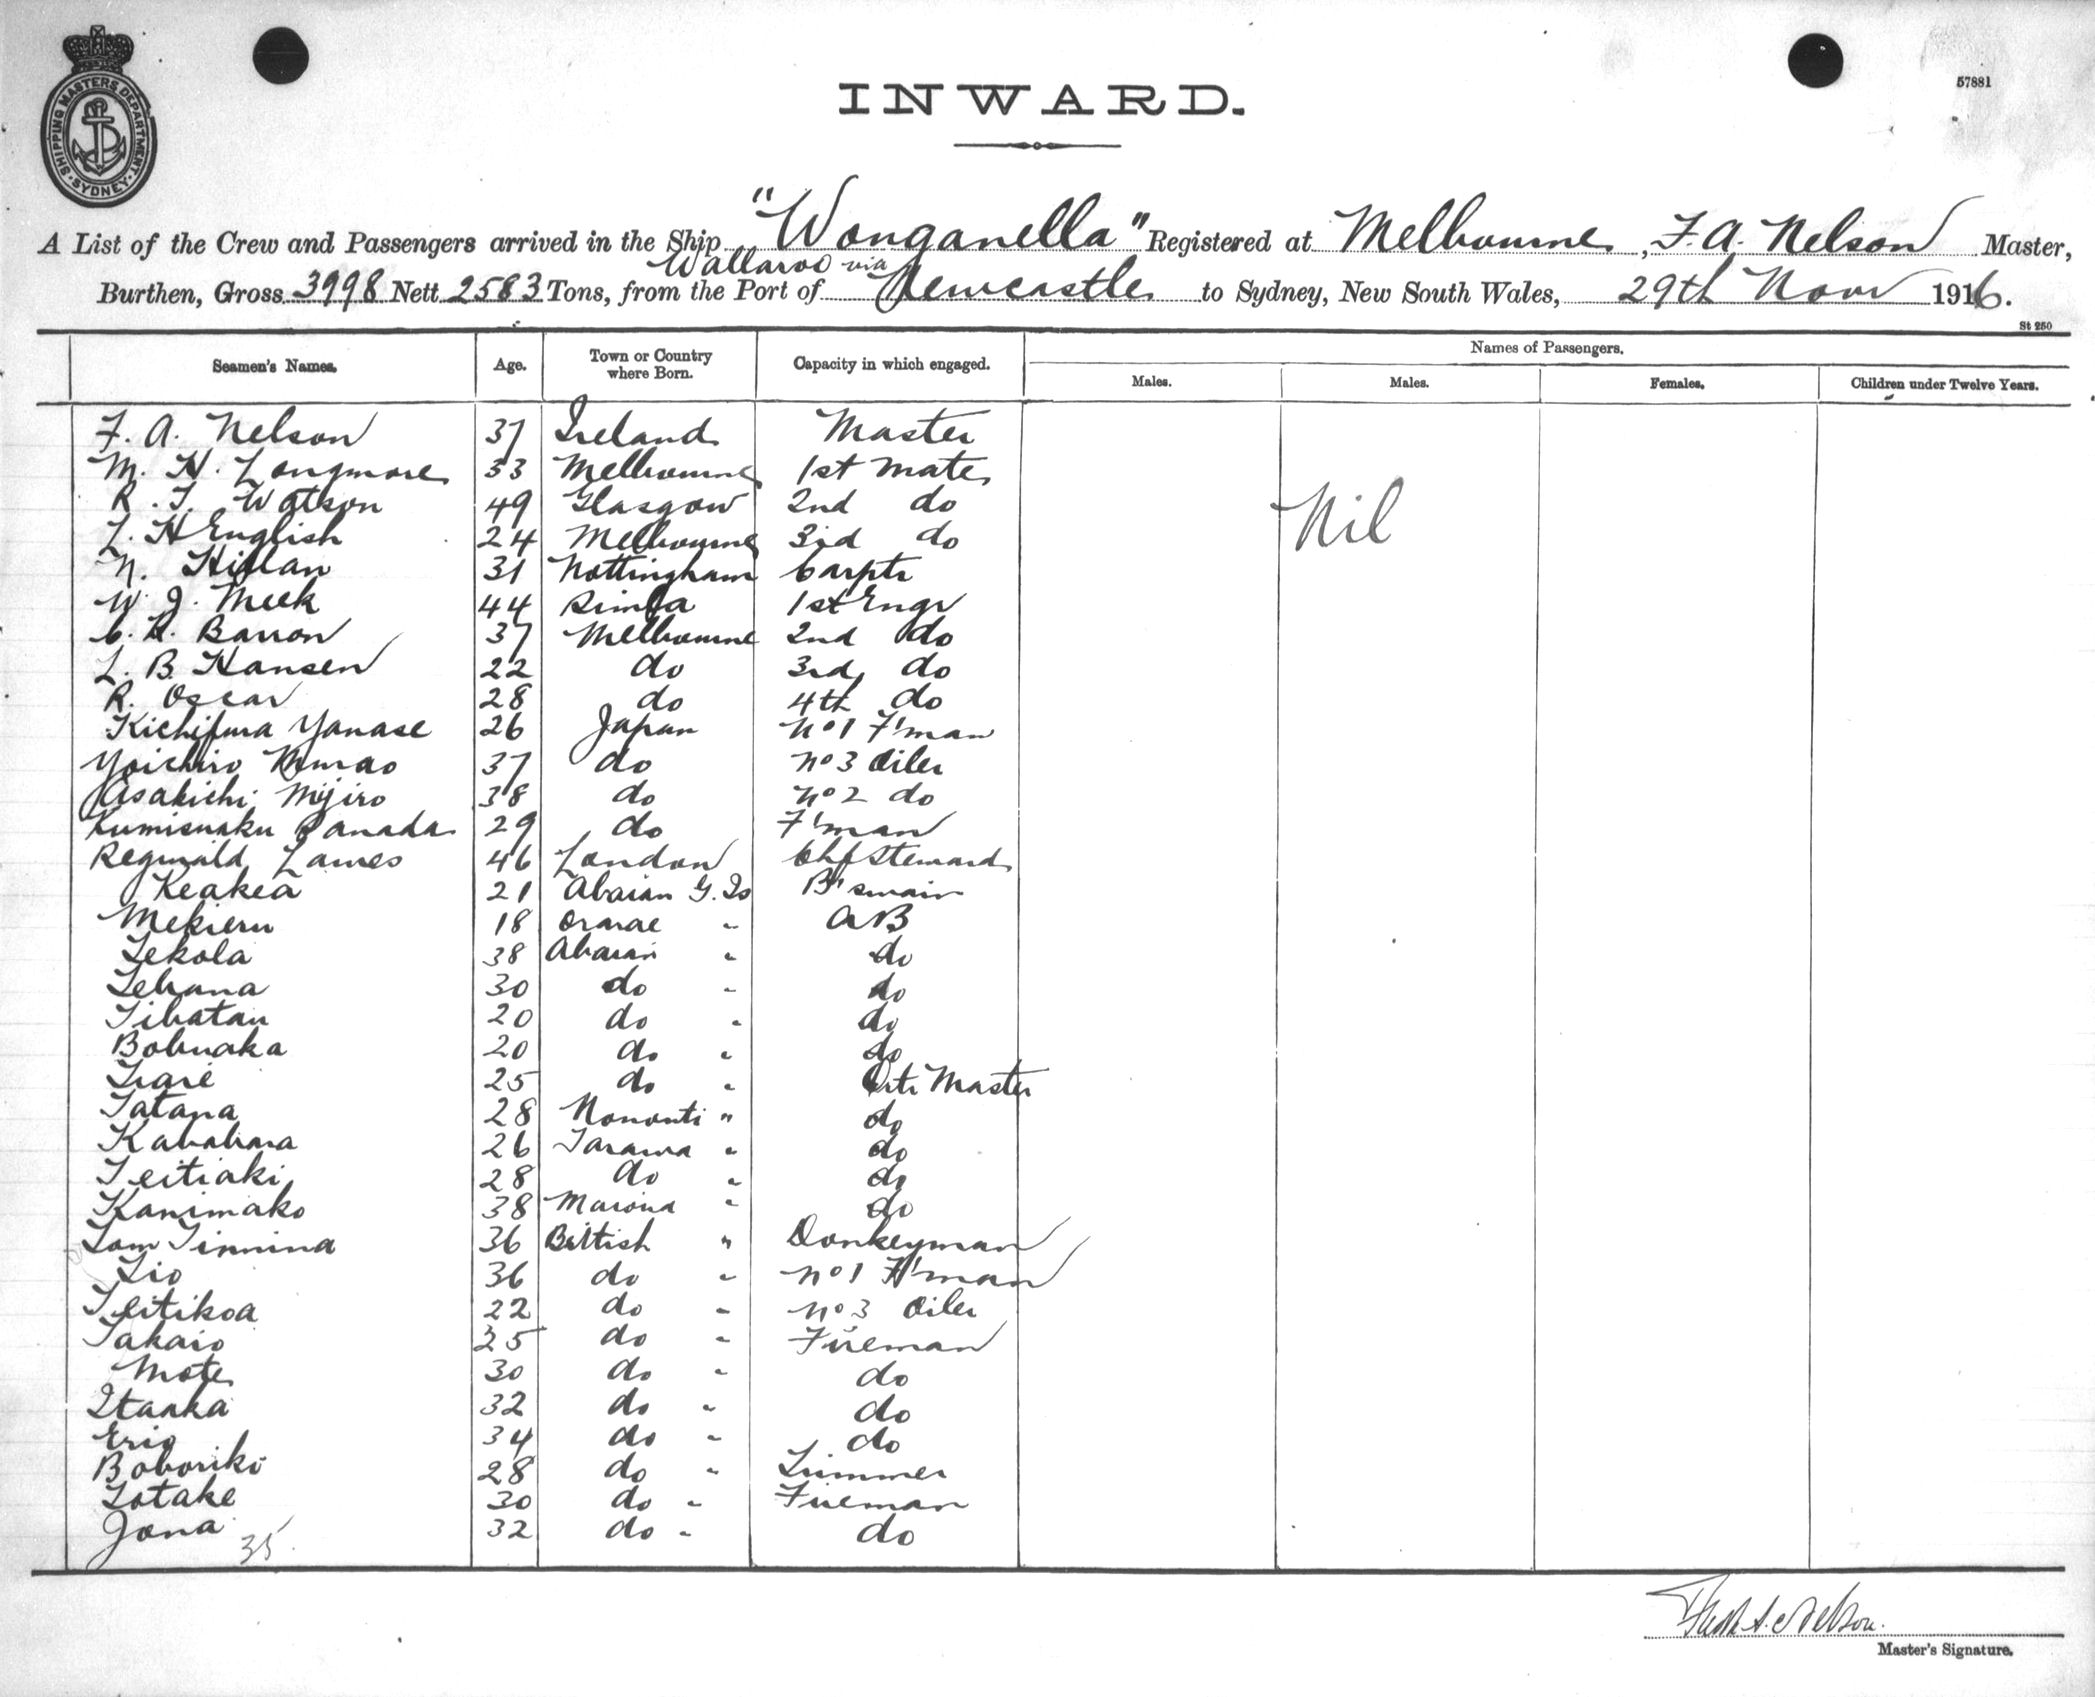 SHIPPING MASTERS DEPARTMENT
SYDNEY
57881
INWARD.
A List of the Crew and Passengers arrived in the Ship "Wonganella" Registered at Melbourne, F. A. Nelson Master,
Wallaroo via
Burthen, Gross 3998 Nett 2583 Tons, from the Port of Newcastle to Sydney, New South Wales, 29th Novr 1916.
St 250
Seamen's Names. Age. Town or Country where Born. Capacity in which engaged. Names of Passengers.
Males. Males. Females. Children under Twelve Years.
F. A. Nelson 37 Ireland Master
M. H. Longmore 33 Melbourne 1st Mate
R. T. Watson 49 Glasgow 2nd do
Nil
L. H English 24 Melbourne 3rd do
N. Hillan 31 Nottingham Carptr
W. J. Meek 44 1st Engr
C. R. Barron 37 Melbourne 2nd do
L. B. Hansen 22 do 3rd do
R. Oscar 28 do 4th do
Yanase 26 Japan No 1 F'man
Yoichiro 37 do No 3 Oiler
Asakichi Mijiro 38 do No 2 do
29 do F'man
Reginald 46 London Chf Steward
Keakea 21 Abaian G. Is B'swain
Mekieru 18 " AB
Tekola 38 Abaian " do
Tebana 30 do " do
Tibatau 20 do " do
Bobuaka 20 do " do
25 do " Qrtr Master
Tatana 28 Nonouti " do
26 Tarawa " do
Teitiaki 28 do " do
Kanimako 38 " do
Tom 36 British " Donkeyman
Tio 36 do " No 1 F'man
Teitikoa 22 do " No 3 Oiler
Takaio 25 do " Fireman
Mote 30 do " do
32 do " do
Erio 34 do " do
Boboriki 28 do " Trimmer
Totake 30 do " Fireman
Jona 32 do " do
35
Nelson.
Master's Signature.